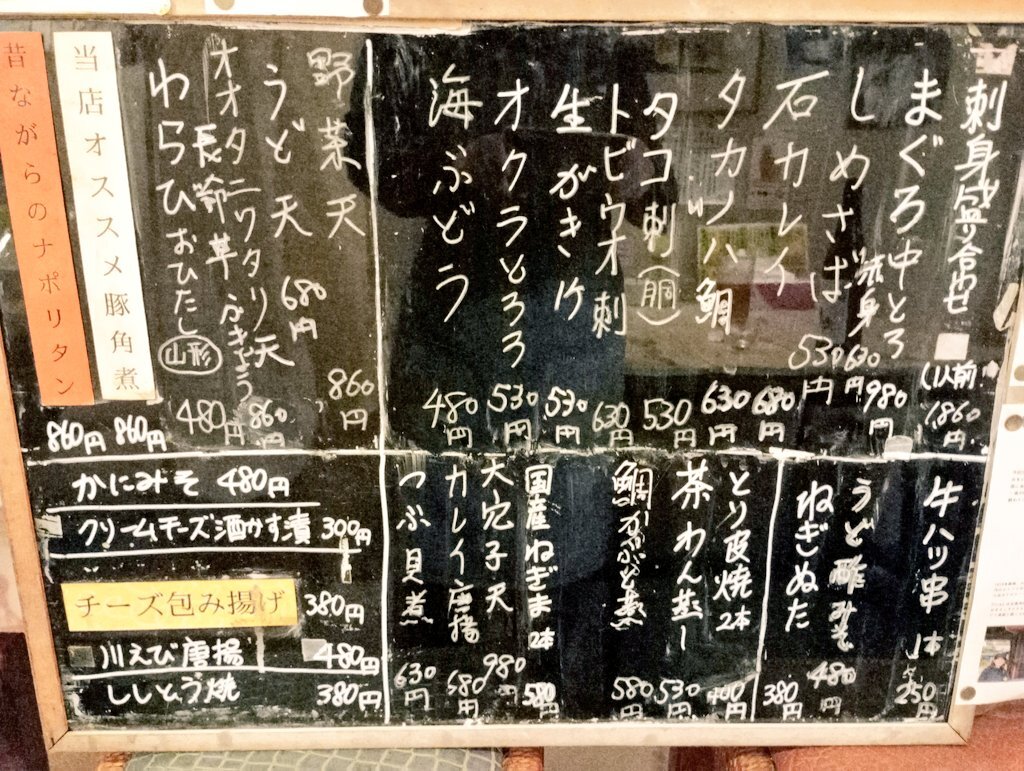 刺身盛り合わせ (1人前 1,860円
まぐろ中とろ 980円
しめさば 630円
石カレイ 680円
タカノハ鯛 630円
タコ刺(胴) 530円
トビウオ刺 630円
生がき1ケ 530円
オクラとろろ 530円
海ぶどう 480円
野菜天 860円
うど天 680円
オオタニワタリ天 860円
わらびおひたし 山形 480円
当店オススメ豚角煮 860円
昔ながらのナポリタン 860円
牛ハツ串 1本 250円
うど酢みそ 480円
ねぎぬた 380円
とり皮焼 2本 400円
茶わん蒸し 530円
鯛かぶと煮 580円
国産ねぎま 2本 580円
天穴子天 980円
カレイ唐揚 680円
つぶ貝煮 630円
かにみそ 480円
クリームチーズ酒かす漬 300円
チーズ包み揚げ 380円
川えび唐揚 480円
ししとう焼 380円